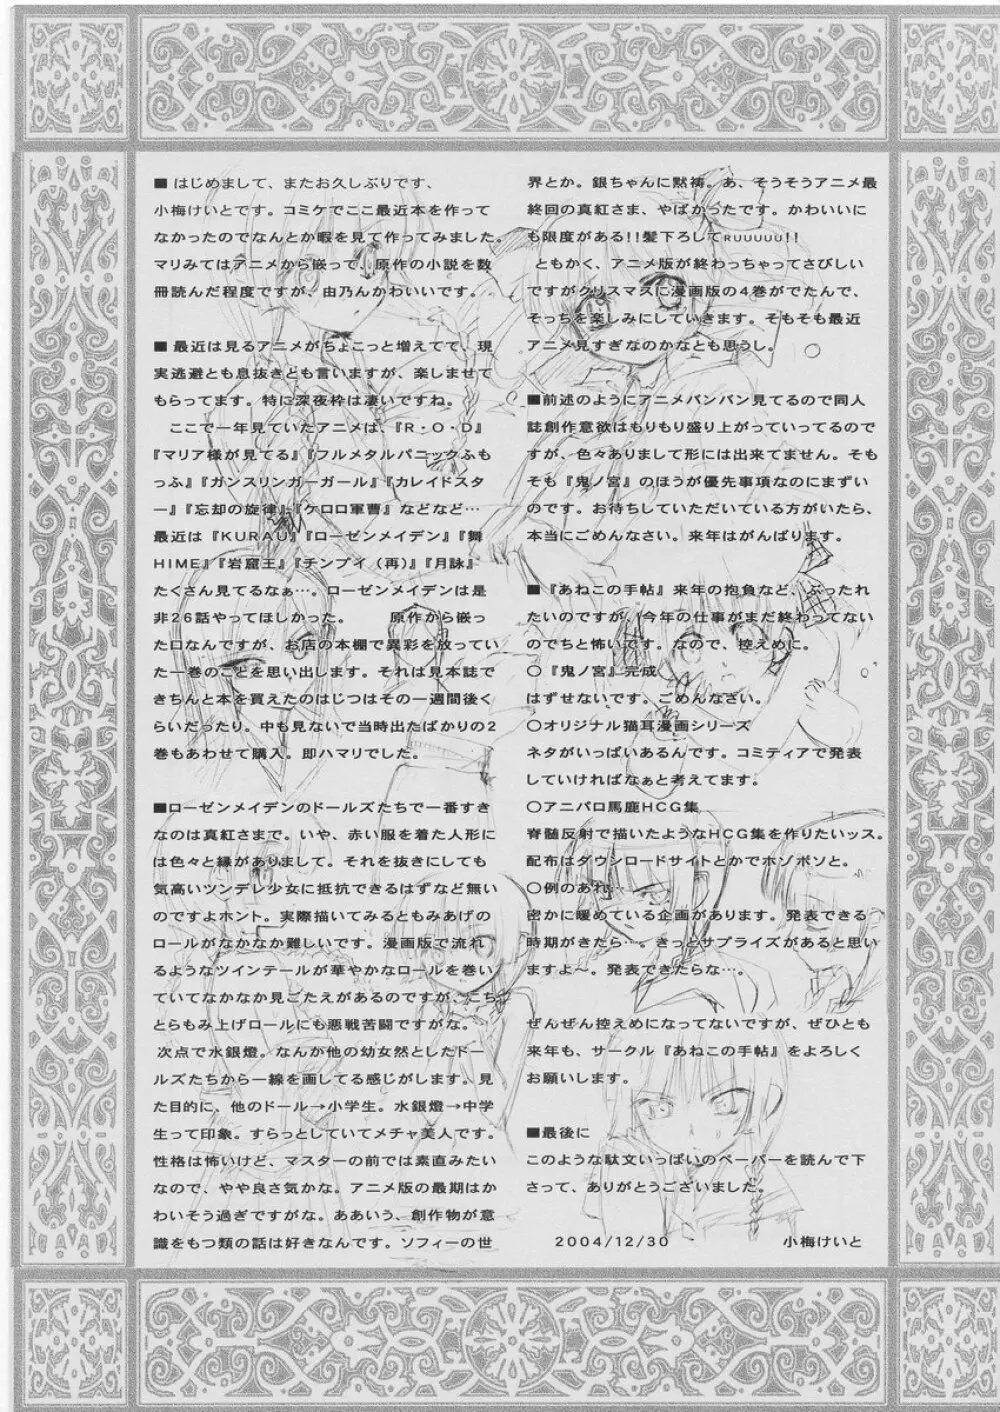 ■ はじめまして、またお久しぶりです、
小梅けいとです。コミケでここ最近本を作って
なかったのでなんとか暇を見て作ってみました。
マリみてはアニメから嵌って、原作の小説を数
冊読んだ程度ですが、由乃んかわいいです。
■ 最近は見るアニメがちょこっと増えてて、現
実逃避とも息抜きとも言いますが、楽しませて
もらってます。特に深夜枠は凄いですね。
ここで一年見ていたアニメは、『R・O・D』
『マリア様が見てる』『フルメタルパニックふも
っふ』『ガンスリンガーガール』『カレイドスタ
ー』『忘却の旋律』『ケロロ軍曹』などなど…
最近は『KURAU』『ローゼンメイデン』『舞
HIME』『岩窟王』『チンプイ（再）』『月詠』
たくさん見てるなぁ…。ローゼンメイデンは是
非26話やってほしかった。　　原作から嵌っ
た口なんですが、お店の本棚で異彩を放ってい
た一巻のことを思い出します。それは見本誌で
きちんと本を買えたのはじつはその一週間後く
らいだったり。中も見ないで当時出たばかりの2
巻もあわせて購入。即ハマリでした。
■ローゼンメイデンのドールズたちで一番すき
なのは真紅さまで。いや、赤い服を着た人形に
は色々と縁がありまして。それを抜きにしても
気高いツンデレ少女に抵抗できるはずなど無い
のですよホント。実際描いてみるともみあげの
ロールがなかなか難しいです。漫画版で流れ
るようなツインテールが華やかなロールを巻い
ていてなかなか見ごたえがあるのですが、こち
とらもみ上げロールにも悪戦苦闘ですがな。
次点で水銀燈。なんか他の幼女然としたドー
ルズたちから一線を画してる感じがします。見
た目的に、他のドール→小学生。水銀燈→中学
生って印象。すらっとしていてメチャ美人です。
性格は怖いけど、マスターの前では素直みたい
なので、やや良さ気かな。アニメ版の最期はか
わいそう過ぎですがな。ああいう、創作物が意
識をもつ類の話は好きなんです。ソフィーの世
界とか。銀ちゃんに黙祷。あ、そうそうアニメ最
終回の真紅さま、やばかったです。かわいいに
も限度がある!!髪下ろしてRUUUUU!!
ともかく、アニメ版が終わっちゃってさびしい
ですがクリスマスに漫画版の4巻がでたんで、
そっちを楽しみにしていきます。そもそも最近
アニメ見すぎなのかなとも思うし。
■前述のようにアニメバンバン見てるので同人
誌創作意欲はもりもり盛り上がっていってるので
すが、色々ありまして形には出来てません。そも
そも『鬼ノ宮』のほうが優先事項なのにまずい
のです。お待ちしていただいている方がいたら、
本当にごめんなさい。来年はがんばります。
■『あねこの手帖』来年の抱負など、ぶったれ
たいのですが、今年の仕事がまだ終わってない
のでちと怖いです。なので、控えめに。
○『鬼ノ宮』完成
はずせないです、ごめんなさい。
○オリジナル猫耳漫画シリーズ
ネタがいっぱいあるんです。コミティアで発表
していければなぁと考えてます。
○アニパロ馬鹿HCG集
脊髄反射で描いたようなHCG集を作りたいッス。
配布はダウンロードサイトとかでボソボソと。
○例のあれ…
密かに暖めている企画があります。発表できる
時期がきたら…。きっとサプライズがあると思い
ますよ～。発表できたらな…。
ぜんぜん控えめになってないですが、ぜひとも
来年も、サークル『あねこの手帖』をよろしく
お願いします。
■最後に
このような駄文いっぱいのペーパーを読んで下
さって、ありがとうございました。
2004/12/30　小梅けいと